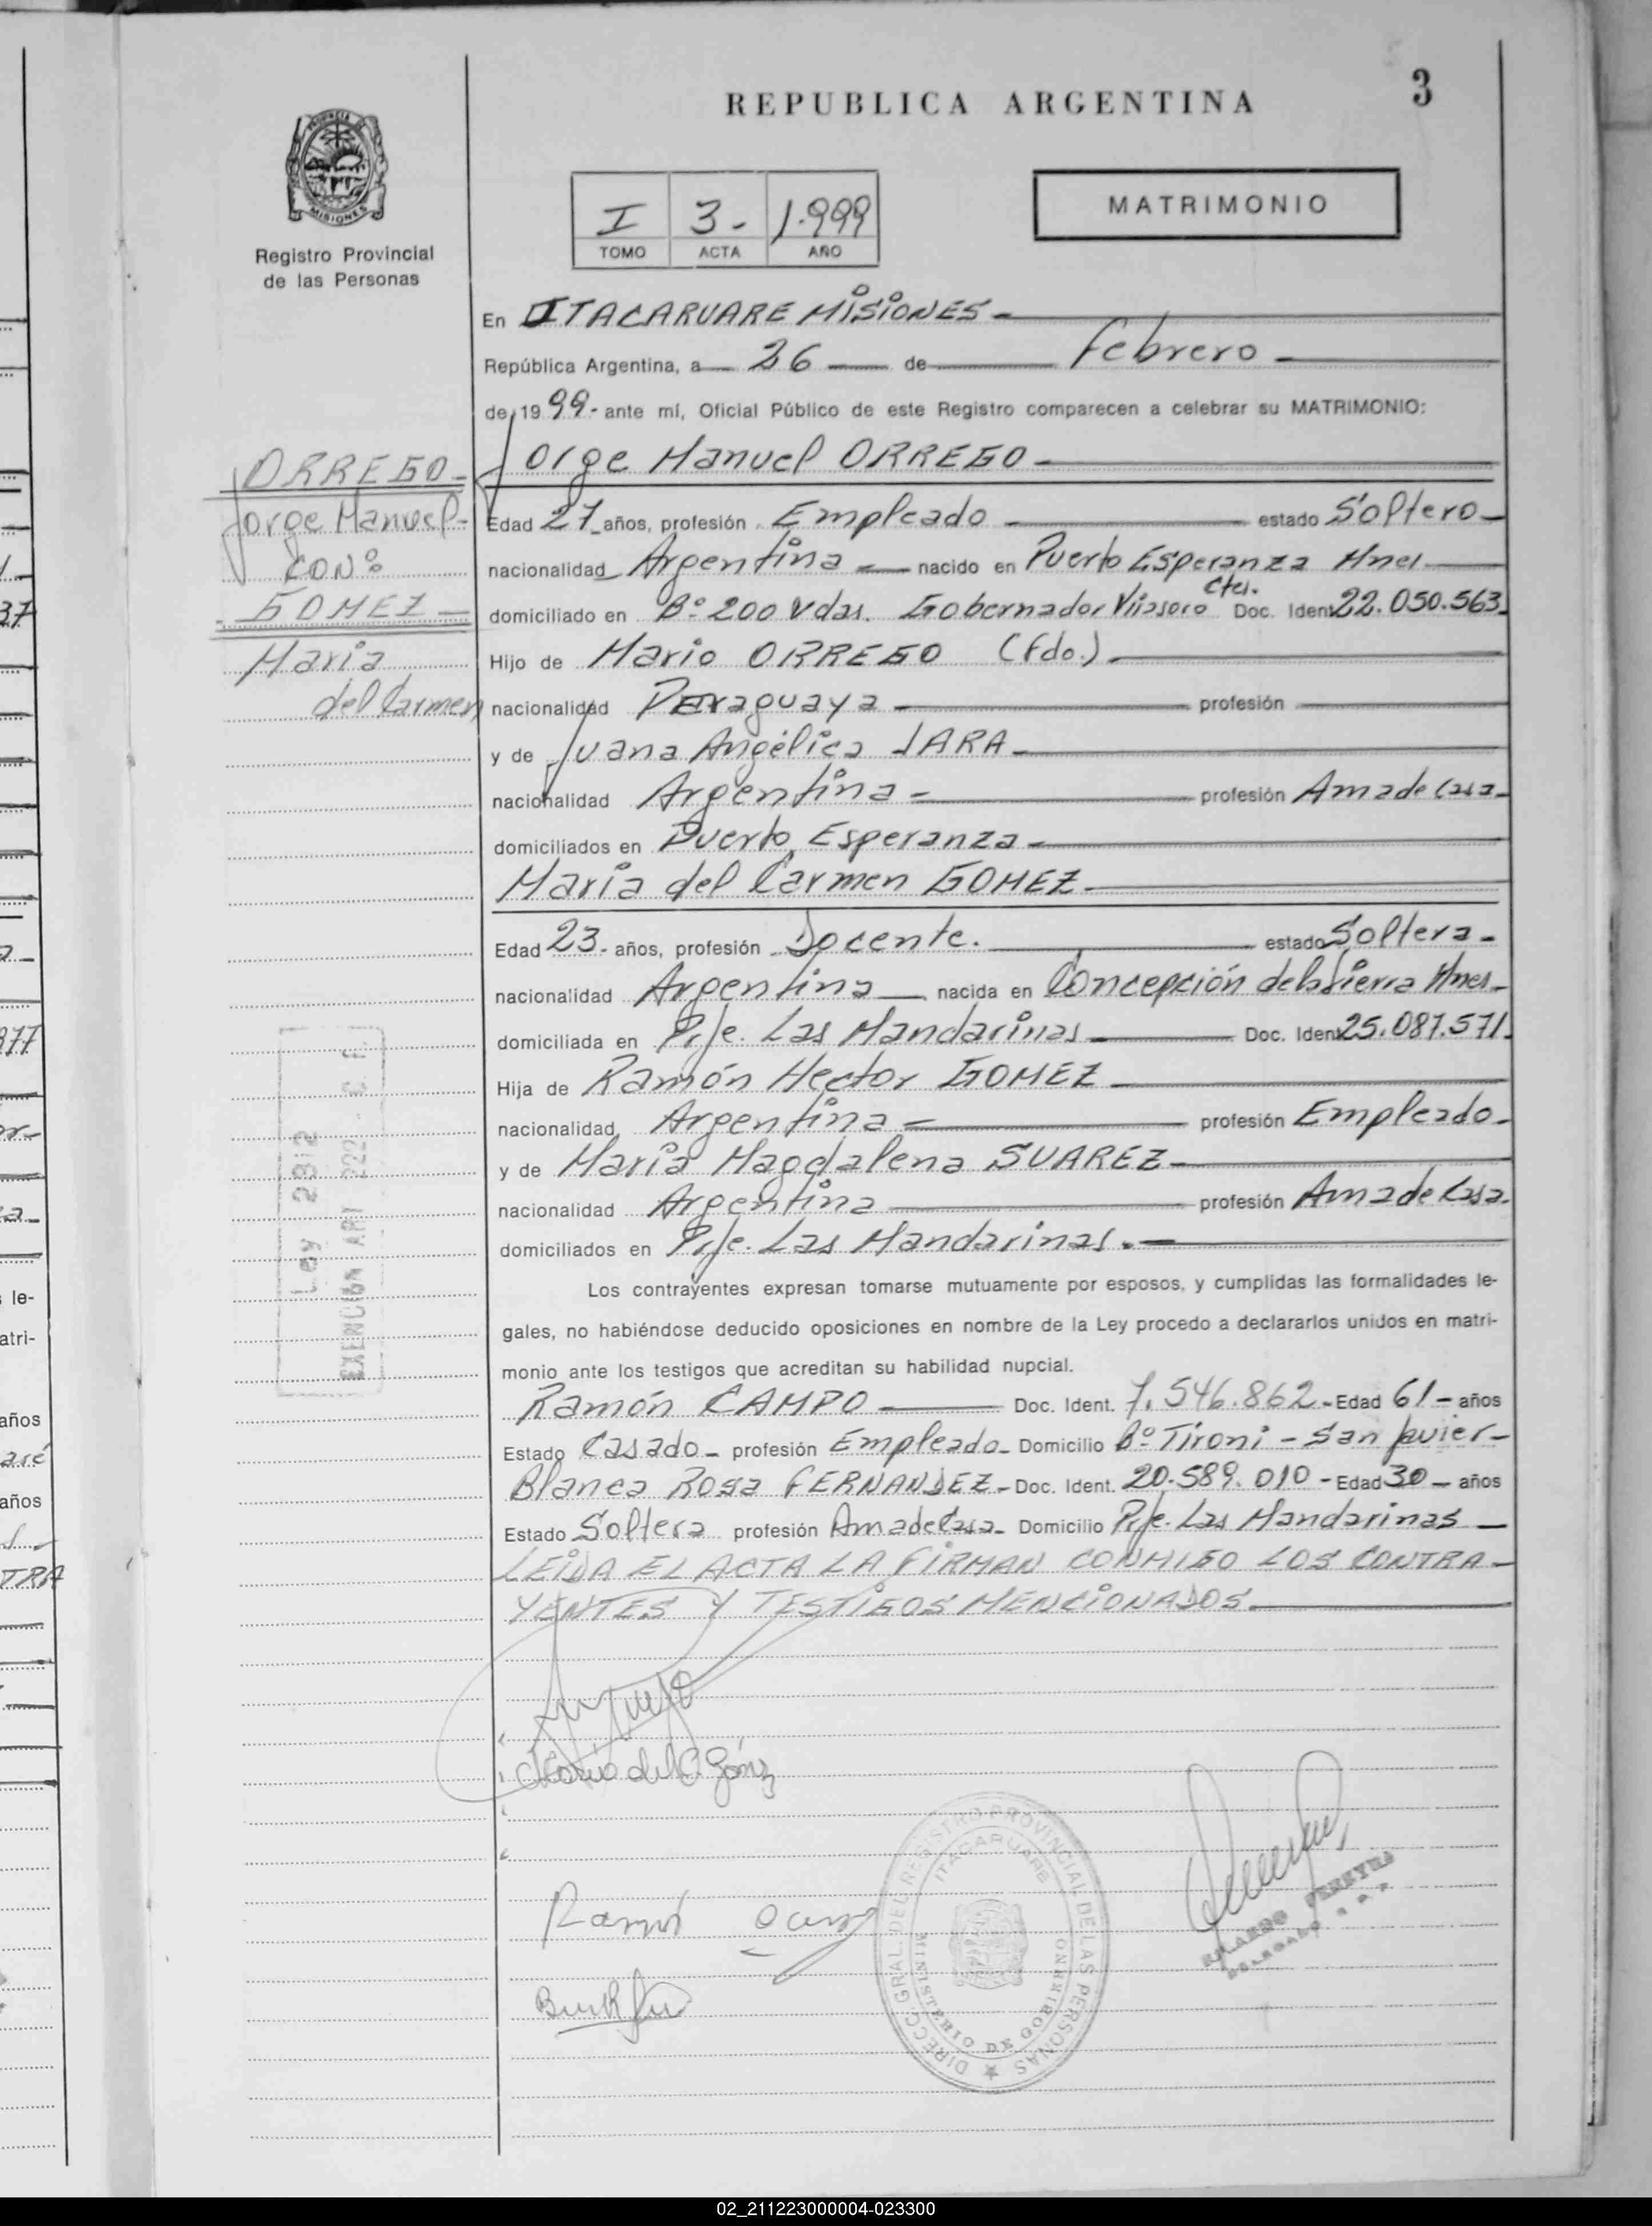 REPUBLICA ARGENTINA
3
PROVINCIA DE
MISIONES
Registro Provincial
de las Personas
I 3- 1.999
TOMO ACTA AÑO
MATRIMONIO
En ITACARUARE MISIONES -
República Argentina, a 26 de Febrero -
de 1999- ante mí, Oficial Público de este Registro comparecen a celebrar su MATRIMONIO:
Jorge Manuel ORREGO -
ORREGO -
Jorge Manuel -
CON:
GOMEZ -
Maria
del Carmen
Edad 27- años, profesión Empleado estado Soltero -
nacionalidad Argentina - nacido en Puerto Esperanza Mnes.
domiciliado en B° 200 Vdas. Gobernador Virasoro Ctes. Doc. Ident. 22.050.563.
Hijo de Mario ORREGO (fdo.) -
nacionalidad Paraguaya - profesión
y de Juana Angélica JARA -
nacionalidad Argentina - profesión Ama de Casa -
domiciliados en Puerto Esperanza -
Maria del Carmen GOMEZ -
Edad 23- años, profesión Docente. estado Soltera -
nacionalidad Argentina nacida en Concepción de la Sierra Mnes -
domiciliada en Pje. Las Mandarinas - Doc. Ident. 25.087.571.
Hija de Ramón Hector GOMEZ
nacionalidad Argentina - profesión Empleado -
y de Maria Magdalena SUAREZ -
nacionalidad Argentina profesión Ama de Casa.
domiciliados en Pje. Las Mandarinas. -
Ley 2912
EXENCION ART 222
Los contrayentes expresan tomarse mutuamente por esposos, y cumplidas las formalidades le-
gales, no habiéndose deducido oposiciones en nombre de la Ley procedo a declararlos unidos en matri-
monio ante los testigos que acreditan su habilidad nupcial.
Ramón CAMPO - Doc. Ident. 7.546.862 - Edad 61 - años
Estado Casado - profesión Empleado - Domicilio B° Tironi - San Javier -
Blanca Rosa FERNANDEZ - Doc. Ident. 20.589.010 - Edad 30 - años
Estado Soltera profesión Ama de Casa - Domicilio Pje. Las Mandarinas -
LEIDA EL ACTA LA FIRMAN CONMIGO LOS CONTRA -
YENTES Y TESTIGOS MENCIONADOS.
Maria del C. Gómez
Ramón
DIRECC. GRAL. DEL REGISTRO PROVINCIAL DE LAS PERSONAS
ITACARUARE
MINISTERIO DE GOBIERNO
PEREYRA
02_211223000004-023300